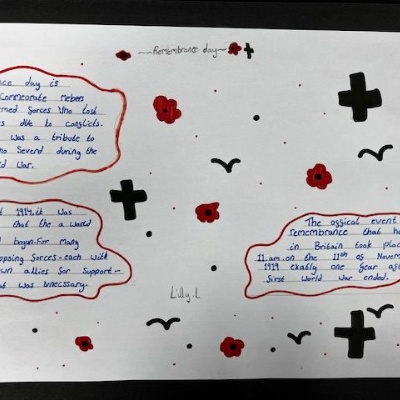 Remembrance day
nce day is
Commeorate
rmed forces who lost
s due to conflicts.
was a tribute to
ho Severd during the
ld War.
1914, it was
that the a world
begun. For Many
pposing Forces-each with
own allies for support-
at was unecessary.
The offical event
remembrance that
in Britain took place
11.am.on the 11th of Novem
1919 exatly one year af
first World War ended.
Lilly.L